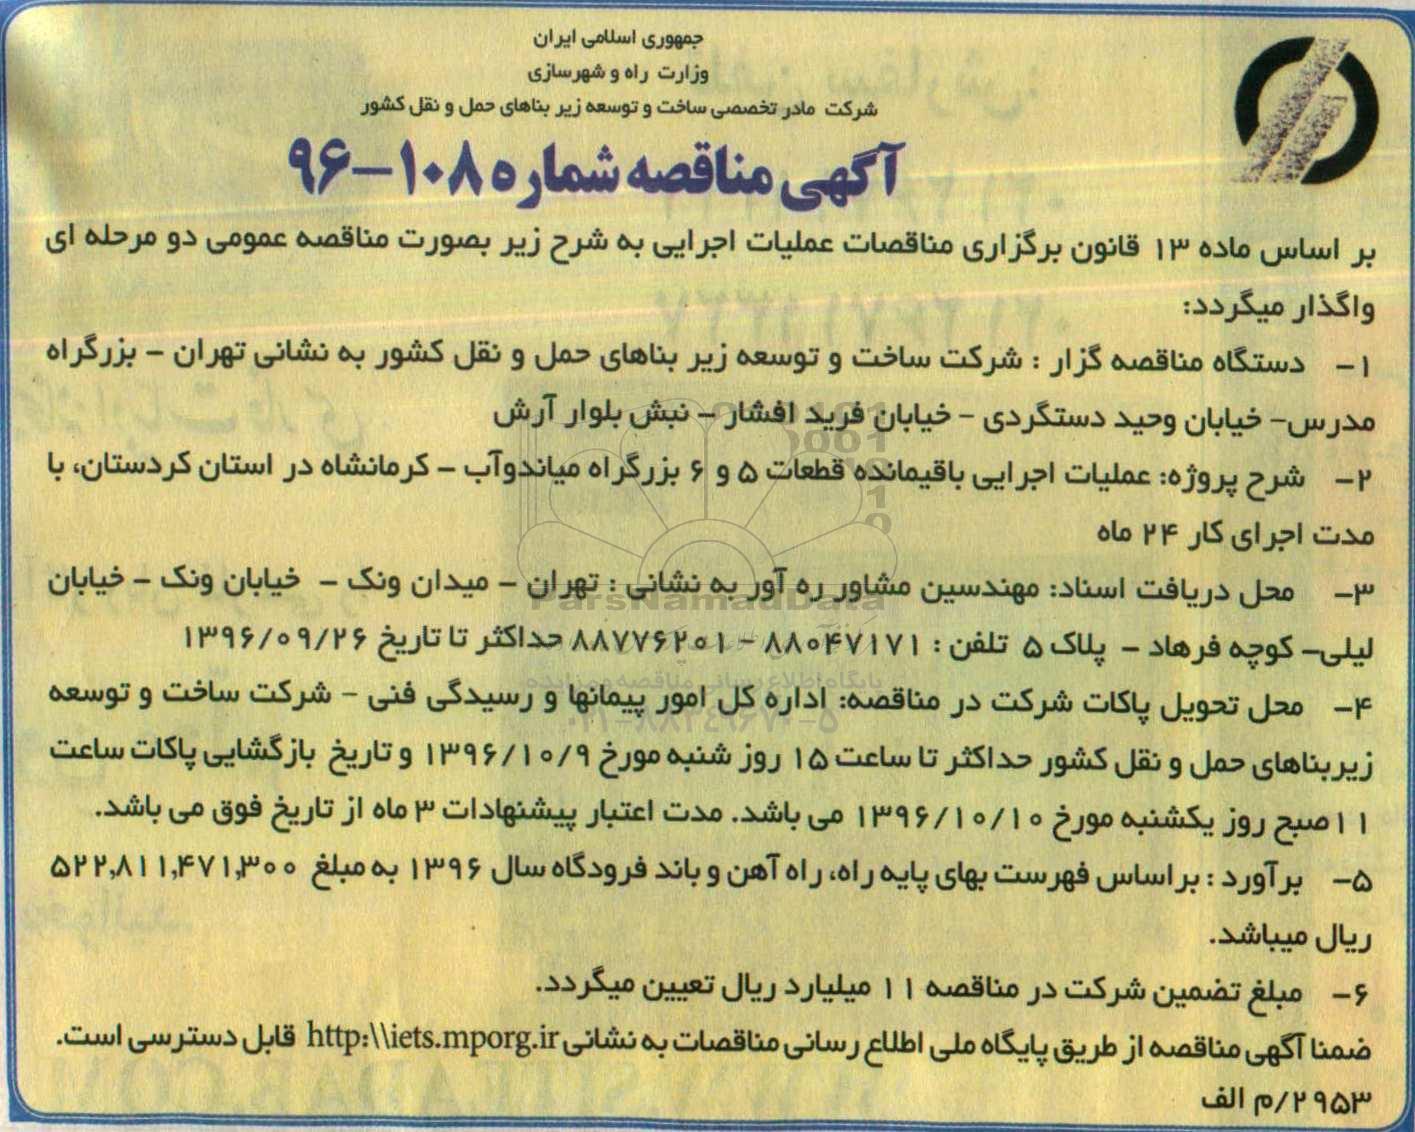 جمهوری اسلامی ایران
وزارت راه و شهرسازی
شرکت مادر تخصصی ساخت و توسعه زیر بناهای حمل و نقل کشور
آگهی مناقصه شماره ۱۰۸-۹۶
بر اساس ماده ۱۳ قانون برگزاری مناقصات عملیات اجرایی به شرح زیر بصورت مناقصه عمومی دو مرحله ای
واگذار میگردد:
۱- دستگاه مناقصه گزار : شرکت ساخت و توسعه زیر بناهای حمل و نقل کشور به نشانی تهران - بزرگراه
مدرس- خیابان وحید دستگردی - خیابان فرید افشار - نبش بلوار آرش
۲- شرح پروژه: عملیات اجرایی باقیمانده قطعات ۵ و ۶ بزرگراه میاندوآب - کرمانشاه در استان کردستان، با
مدت اجرای کار ۲۴ ماه
۳- محل دریافت اسناد: مهندسین مشاور ره آور به نشانی : تهران - میدان ونک - خیابان ونک - خیابان
لیلی- کوچه فرهاد - پلاک ۵ تلفن : ۸۸۰۴۷۱۷۱ - ۸۸۷۷۶۲۰۱ حداکثر تا تاریخ ۱۳۹۶/۰۹/۲۶
۴- محل تحویل پاکات شرکت در مناقصه: اداره کل امور پیمانها و رسیدگی فنی - شرکت ساخت و توسعه
زیربناهای حمل و نقل کشور حداکثر تا ساعت ۱۵ روز شنبه مورخ ۱۳۹۶/۱۰/۹ و تاریخ بازگشایی پاکات ساعت
۱۱صبح روز یکشنبه مورخ ۱۳۹۶/۱۰/۱۰ می باشد. مدت اعتبار پیشنهادات ۳ ماه از تاریخ فوق می باشد.
۵- برآورد : براساس فهرست بهای پایه راه، راه آهن و باند فرودگاه سال ۱۳۹۶ به مبلغ ۵۲۲,۸۱۱,۴۷۱,۳۰۰
ریال میباشد.
۶- مبلغ تضمین شرکت در مناقصه ۱۱ میلیارد ریال تعیین میگردد.
ضمنا آگهی مناقصه از طریق پایگاه ملی اطلاع رسانی مناقصات به نشانی http:\\iets.mporg.ir قابل دسترسی است.
۲۹۵۳/م الف
ParsNamadData
پایگاه اطلاع رسانی مناقصه و مزایده